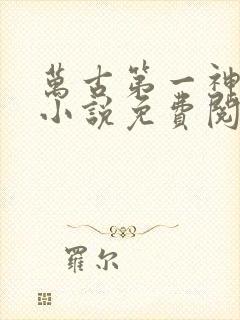 萬古第一神
小說免費閱
羅尔